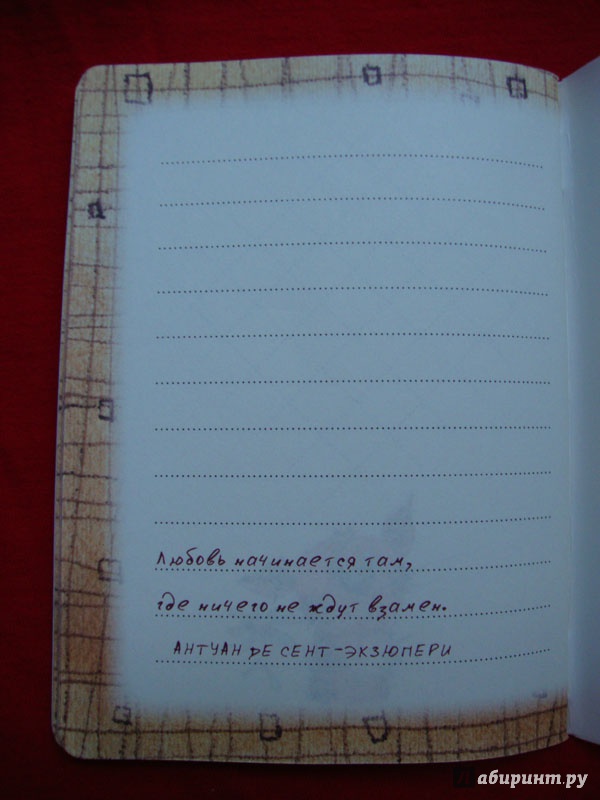 Любовь начинается там,
где ничего не ждут взамен.
АНТУАН ДЕ СЕНТ-ЭКЗЮПЕРИ
Лабиринт.ру